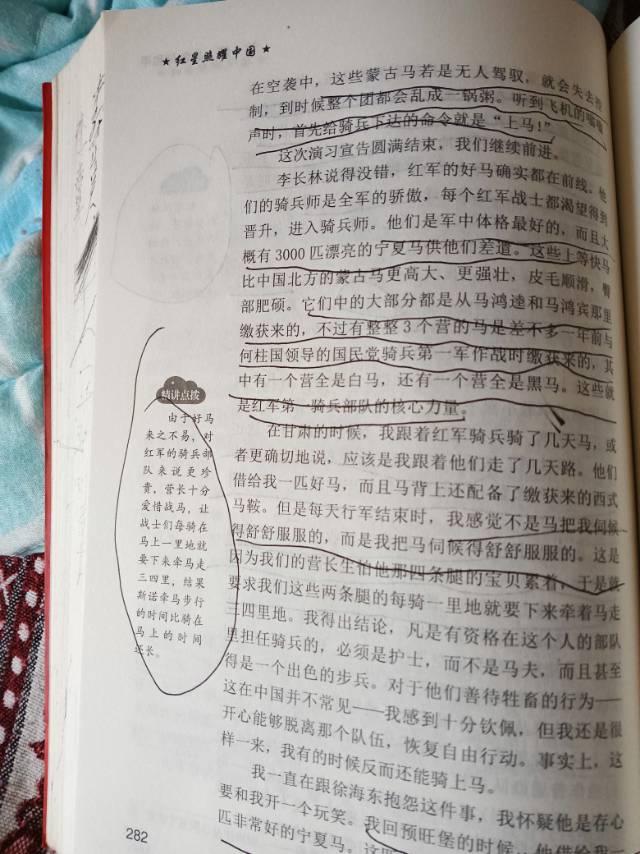 ★ 红星照耀中国 ★
在空袭中，这些蒙古马若是无人驾驭，就会失去控
制，到时候整个团都会乱成一锅粥。听到飞机的嗡嗡
声时，首先给骑兵下达的命令就是“上马！”
这次演习宣告圆满结束，我们继续前进。
李长林说得没错，红军的好马确实都在前线。他
们的骑兵师是全军的骄傲，每个红军战士都渴望得到
晋升，进入骑兵师。他们是军中体格最好的，而且大
概有 3000 匹漂亮的宁夏马供他们差遣。这些上等快马
比中国北方的蒙古马更高大、更强壮，皮毛顺滑，臀
部肥硕。它们中的大部分都是从马鸿逵和马鸿宾那里
缴获来的，不过有整整 3 个营的马是差不多一年前与
何柱国领导的国民党骑兵第一军作战时缴获来的，其
中有一个营全是白马，还有一个营全是黑马。这些就
是红军第一骑兵部队的核心力量。
在甘肃的时候，我跟着红军骑兵骑了几天马，或
者更确切地说，应该是我跟着他们走了几天路。他们
借给我一匹好马，而且马背上还配备了缴获来的西式
马鞍。但是每天行军结束时，我感觉不是马把我伺候
得舒舒服服的，而是我把马伺候得舒舒服服的。这是
因为我们的营长生怕他那四条腿的宝贝累着，于是就
要求我们这些两条腿的每骑一里地就要下来牵着马走
三四里地。我得出结论，凡是有资格在这个人的部队
里担任骑兵的，必须是护士，而不是马夫，而且甚至
得是一个出色的步兵。对于他们善待牲畜的行为——
这在中国并不常见——我感到十分钦佩，但我还是很
开心能够脱离那个队伍，恢复自由行动。事实上，这
样一来，我有的时候反而还能骑上马。
我一直在跟徐海东抱怨这件事，我怀疑他是存心
要和我开一个玩笑。我回预旺堡的时候，他借给我一
匹非常好的宁夏马。
精讲点拨
由于好马
来之不易，对
红军的骑兵部
队来说更珍
贵，营长十分
爱惜战马，让
战士们每骑在
马上一里地就
要下来牵马走
三四里，结果
斯诺牵马步行
的时间比骑在
马上的时间
还长。
282